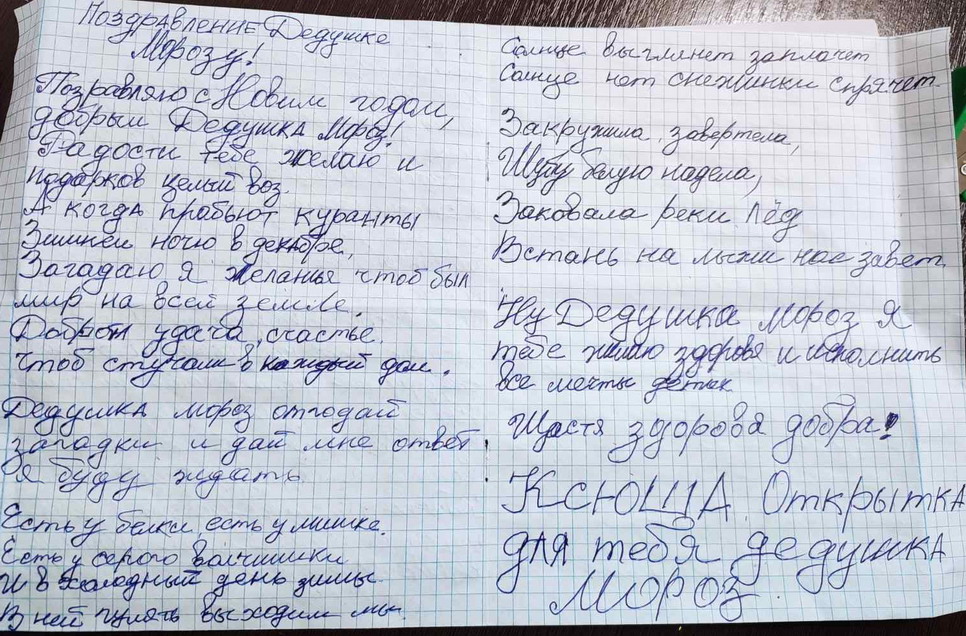 Поздравление Дедушке
Морозу!
Позравляю с Новим годом,
добрый Дедушка Мороз!
Радости тебе желаю и
подарков целый воз.
А когда прабьют куранты
Зимней ночю в декабре,
Загадаю я желанья чтоб был
мир на всей земле.
Доброта удача, счастье.
чтоб стучали в каждый дом.
Дедушка мороз отгодай
загадки и дай мне ответ
я буду ждать
Есть у белки есть у мишке.
Есть у серого волчишики
И в холодный день зимы
В ней гулять выходим мы.
Солнце выглянет заплачет
Солнце нет снежинки спрячет.
Закружила, завертела,
Шубу белую надела,
Заковала реки Лёд
Встань на лыжи нас завет.
Ну Дедушка мороз Я
тебе жилаю здоровя и исполнить
все мечты деток
Щастя здорова добра!
Ксюша Открытка
для тебя дедушка
Мороз.